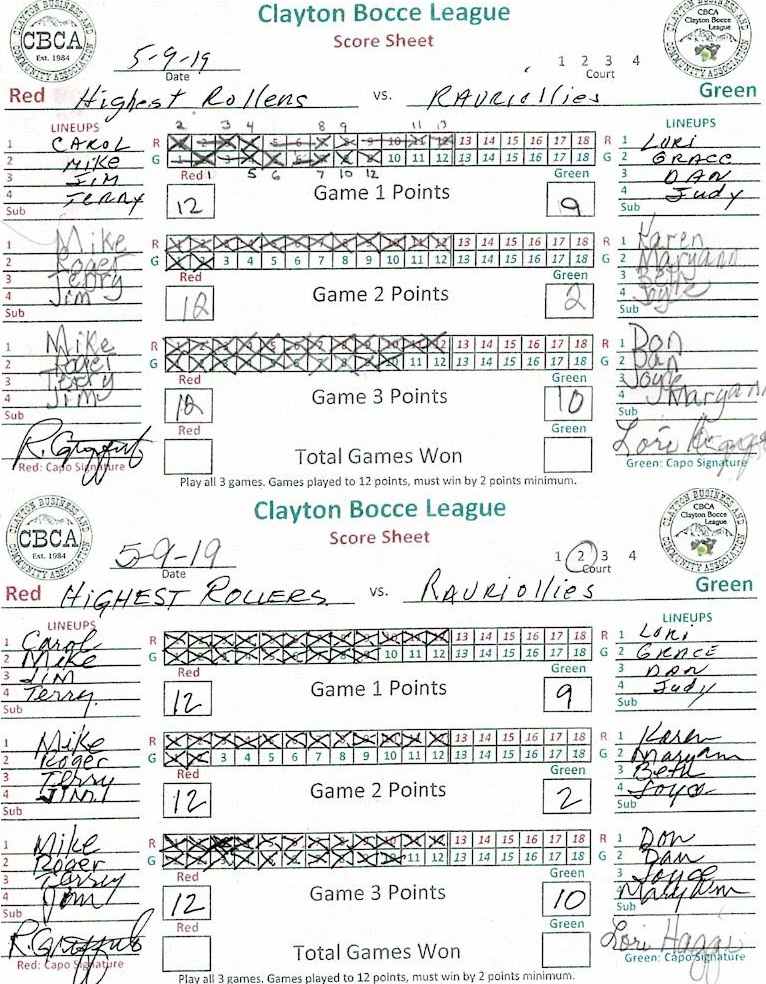 Clayton Bocce League
Score Sheet
CLAYTON BUSINESS AND COMMUNITY ASSOCIATION
CBCA
Est. 1984
CBCA
Clayton Bocce
League
5-9-19
Date
1 2 3 4
Court
Red Highest Rollers vs. RAURIOllies Green
LINEUPS
1 CAROL
2 Mike
3 JIM
4 TERRY
Sub
2 3 4 8 9 11 12
R 1 2 3 4 5 6 7 8 9 10 11 12 13 14 15 16 17 18 R
G 1 2 3 4 5 6 7 8 9 10 11 12 13 14 15 16 17 18 G
Red 1 5 6 7 10 12 Green
12 Game 1 Points 9
LINEUPS
1 LORI
2 GRACE
3 DAN
4 Judy
Sub
1 Mike
2 Roger
3 Terry
4 Jim
Sub
R 1 2 3 4 5 6 7 8 9 10 11 12 13 14 15 16 17 18 R
G 1 2 3 4 5 6 7 8 9 10 11 12 13 14 15 16 17 18 G
Red Green
12 Game 2 Points 2
1 Karen
2 Maryann
3 Beth
4 Joyce
Sub
1 Mike
2 Roger
3 Terry
4 Jim
Sub
R 1 2 3 4 5 6 7 8 9 10 11 12 13 14 15 16 17 18 R
G 1 2 3 4 5 6 7 8 9 10 11 12 13 14 15 16 17 18 G
Red Green
12 Game 3 Points 10
1 Don
2 Dan
3 Joyce
4 Maryann
Sub
Red Green
Total Games Won
Red: Capo Signature
Lori
Green: Capo Signature
Play all 3 games. Games played to 12 points, must win by 2 points minimum.
Clayton Bocce League
Score Sheet
CLAYTON BUSINESS AND COMMUNITY ASSOCIATION
CBCA
Est. 1984
CBCA
Clayton Bocce
League
5-9-19
Date
1 2 3 4
Court
Red HIGHEST ROLLERS vs. RAURIOllies Green
LINEUPS
1 Carol
2 Mike
3 JIM
4 Terry
Sub
R 1 2 3 4 5 6 7 8 9 10 11 12 13 14 15 16 17 18 R
G 1 2 3 4 5 6 7 8 9 10 11 12 13 14 15 16 17 18 G
Red Green
12 Game 1 Points 9
LINEUPS
1 LORI
2 GRACE
3 DAN
4 Judy
Sub
1 Mike
2 Roger
3 Terry
4 JIM
Sub
R 1 2 3 4 5 6 7 8 9 10 11 12 13 14 15 16 17 18 R
G 1 2 3 4 5 6 7 8 9 10 11 12 13 14 15 16 17 18 G
Red Green
12 Game 2 Points 2
1 Karen
2 Maryann
3 Beth
4 Joyce
Sub
1 Mike
2 Roger
3 Terry
4 Jim
Sub
R 1 2 3 4 5 6 7 8 9 10 11 12 13 14 15 16 17 18 R
G 1 2 3 4 5 6 7 8 9 10 11 12 13 14 15 16 17 18 G
Red Green
12 Game 3 Points 10
1 Don
2 Dan
3 Joyce
4 MaryAnn
Sub
Red Green
Total Games Won
Red: Capo Signature
Lori
Green: Capo Signature
Play all 3 games. Games played to 12 points, must win by 2 points minimum.